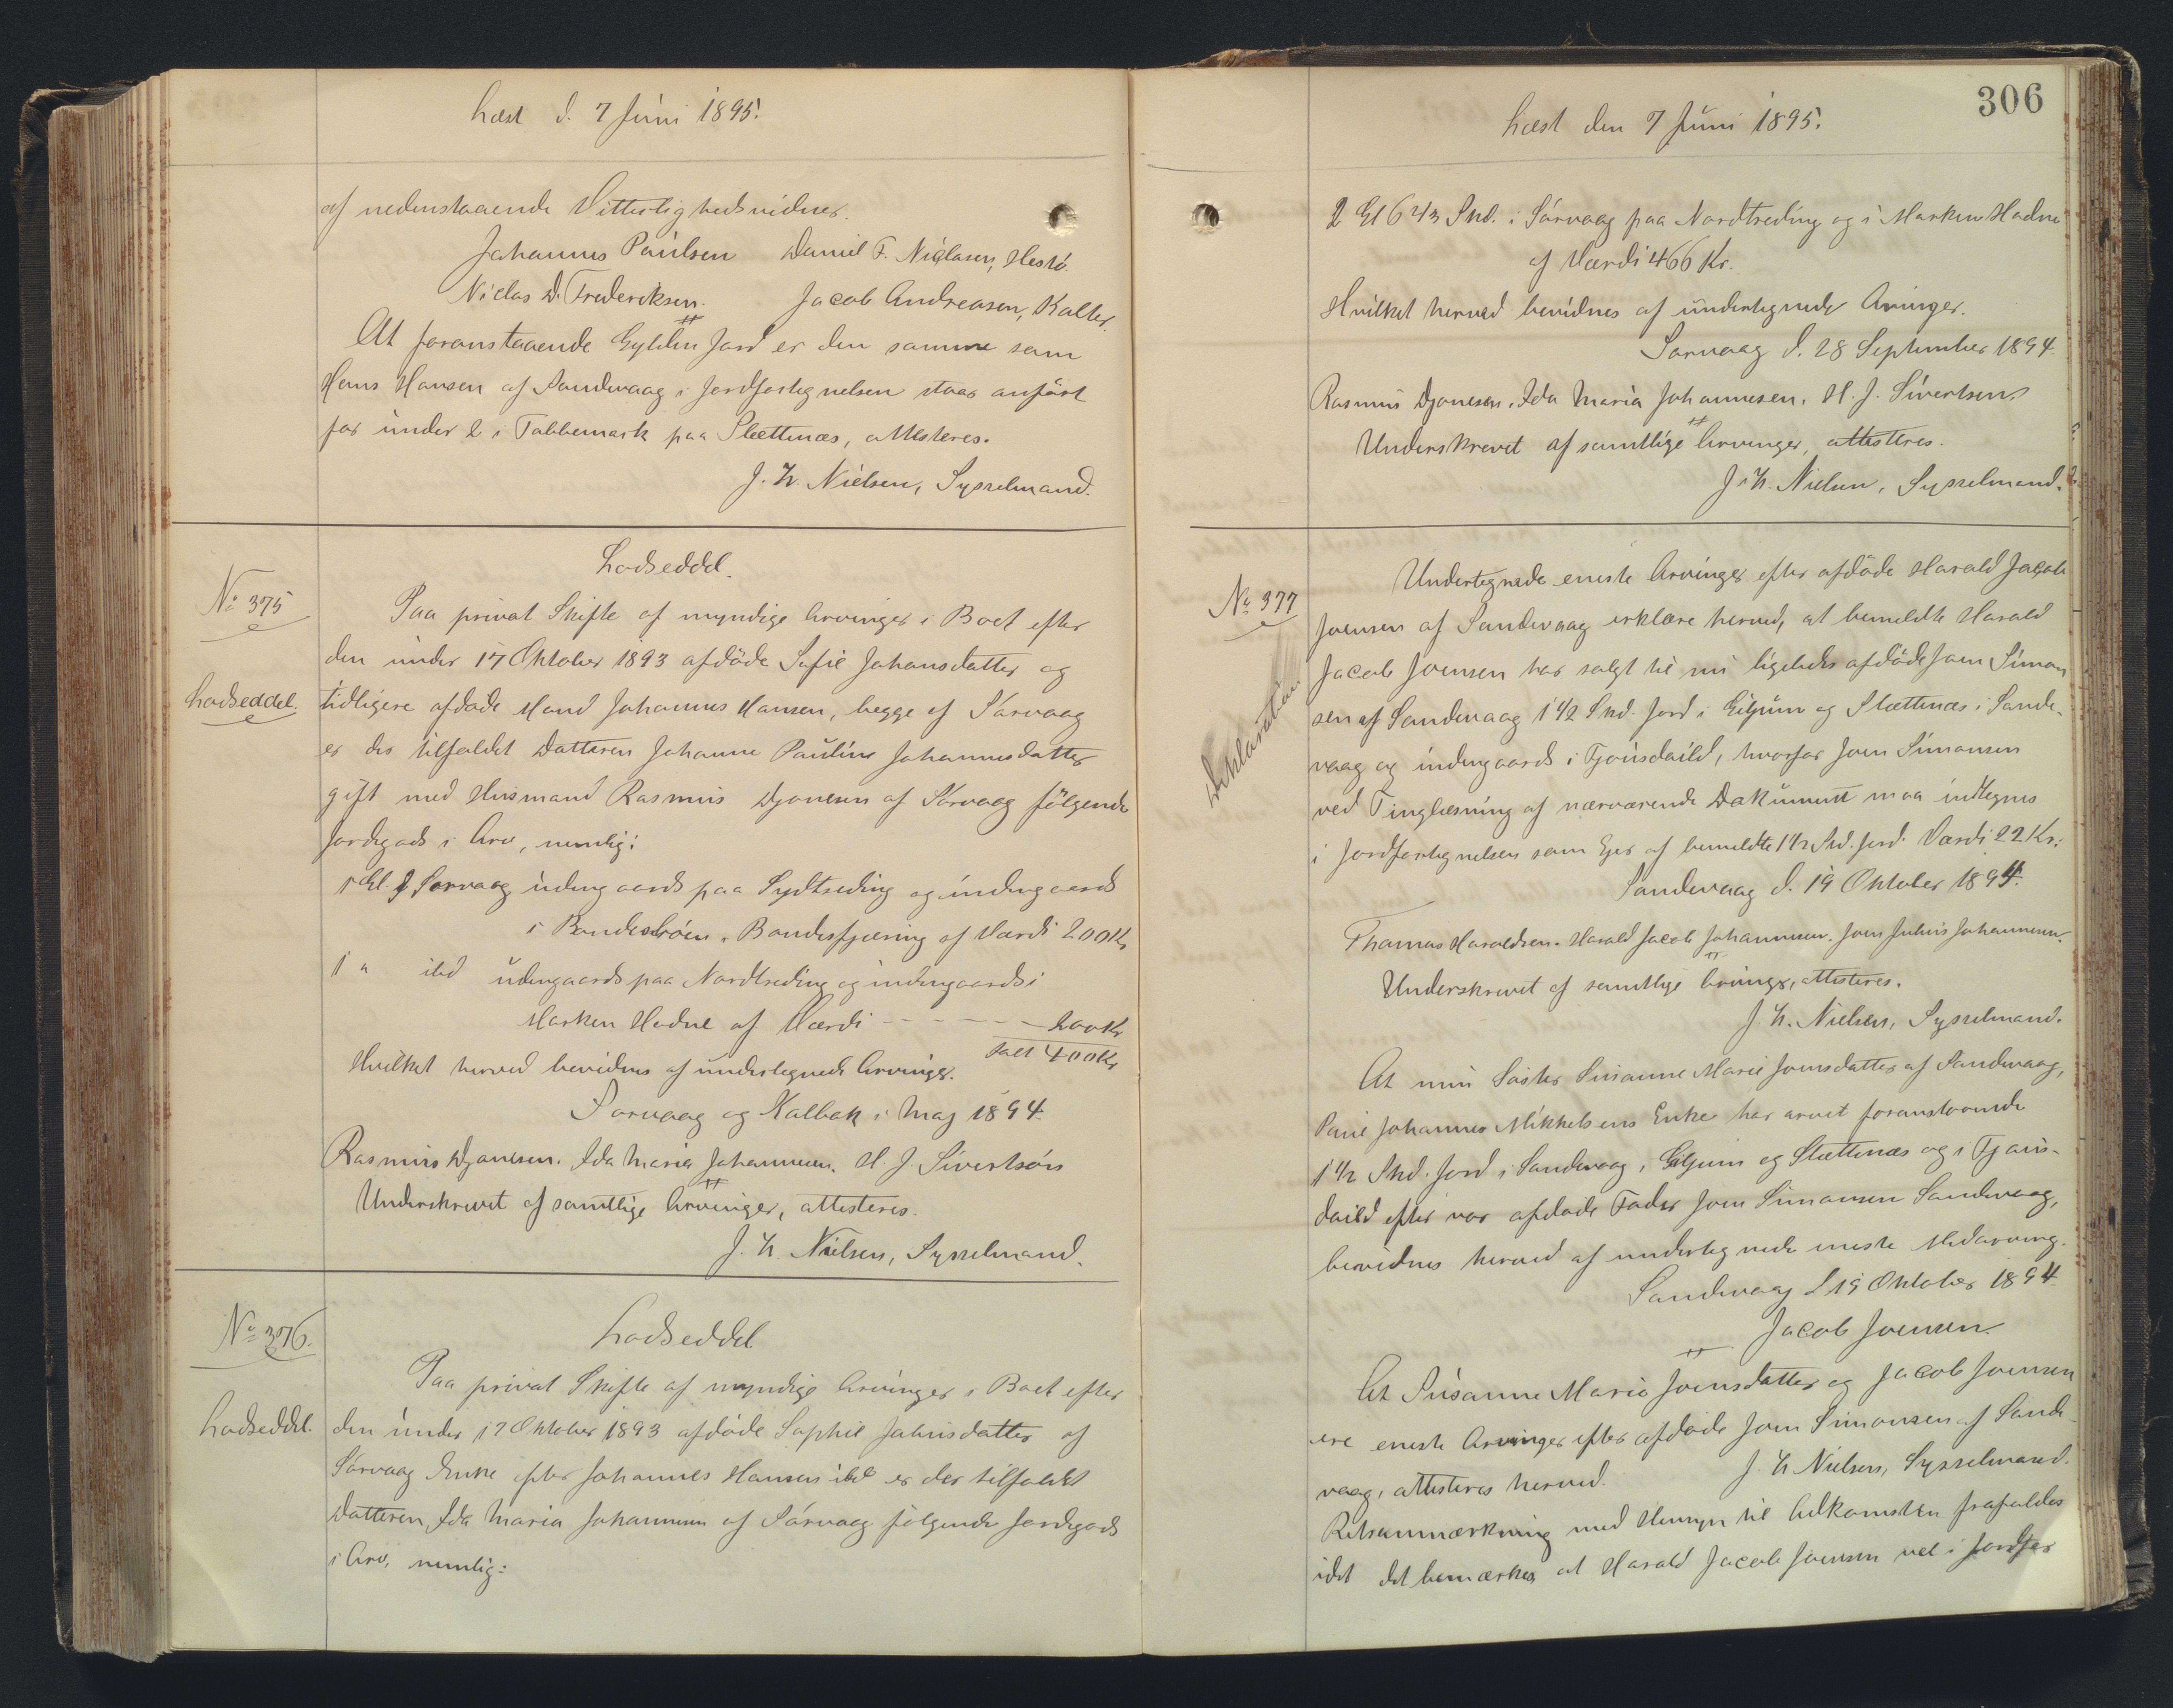 Læst d. 7 Juni 1895.
af nedenstaaende Vitterlighedsvidner.
Johannes Paulsen Daniel F. Niclasen, Hestö.
Niclas D. Frederiksen. Jacob Andreasen, Kalter.
At foranstaaende Gylden Jord er den samme som
Hans Hansen af Sandevaag i Jordfortegnelsen staar anført
for under 2 i Tabbemark paa Slættenæs, attesteres.
J. H. Nielsen, Sysselmand.
No 375
Lodseddel.
Lodseddel.
Paa privat Skifte af myndige Arvinger i Boet efter
den under 17 Oktober 1893 afdöde Sofie Johansdatter og
tidligere afdöde Mand Johannes Hansen, begge af Sörvaag
er der tilfaldet Datteren Johanne Pauline Johannesdatter
gift med Husmand Rasmus Djonesen af Sörvaag fölgende
Jordegods i Arv, nemlig:
1 Gl. i Sorvaag udengaards paa Sydtreding og indengaards
i Bondesböen, Bondesfjæring af Værdi 200 Kr
1 " ibd udengaards paa Nordtreding og indengaards i
Marken Hadne af Værdi - - - - - 200 Kr
Talt 400 Kr
Hvilket herved bevidnes af undertegnede Arvinger.
Sorvaag og Kalbak i Maj 1894.
Rasmus Djonesen. Ida Maria Johannesen. H. J. Sivertsön
Underskrevet af samtlige Arvinger, attesteres.
J. H. Nielsen, Sysselmand.
No 376.
Lodseddel.
Lodseddel
Paa privat Skifte af myndige Arvinger i Boet efter
den under 17 Oktober 1893 afdöde Sophie Johnisdatter af
Sörvaag Enke efter Johannes Hansen ibd er der tilfaldet
Datteren Ida Maria Johannesen af Sörvaag fölgende Jordegods
i Arv, nemlig:
306
Læst den 7 Juni 1895.
2 Gl 6 2/3 Skd. i Sörvaag paa Nordtreding og i Marken Hadne
af Værdi 466 Kr.
Hvilket herved bevidnes af undertegnede Arvinger.
Sorvaag d. 28 September 1894.
Rasmus Djonesen. Ida Maria Johannesen. H. J. Sivertsen
Underskrevet af samtlige Arvinger, attesteres.
J. H. Nielsen, Sysselmand.
No 377
Deklaration
Undertegnede eneste Arvinger efter afdöde Harald Jacob
Joensen af Sandevaag erklære herved, at bemeldte Harald
Jacob Joensen har solgt til nu ligeledes afdöde Joen Simon
sen af Sandevaag 1 1/2 Skd. Jord i Giljum og Slættenæs i Sande-
vaag og indengaards i Tjovisdaild, hvorfor Joen Simonsen
ved Tinglæsning af nærværende Dokument maa indtegnes
i Jordfortegnelsen som Ejer af bemeldte 1 1/2 Skd. Jord. Værdi 22 Kr.
Sandevaag d. 19 Oktober 1894.
Thomas Haraldsen. Harald Jacob Johannesen. Joen Julius Johannesen.
Underskrevet af samtlige Arvinger, attesteres.
J. H. Nielsen, Sysselmand.
At min Söster Susanne Marie Joensdatter af Sandevaag,
Johannes Mikkelsens Enke har arvet foranstaaende
1 1/2 Skd. Jord i Sandevaag, Giljum og Slættenæs og i Tjovis-
daild efter vor afdöde Fader Joen Simonsen Sandevaag,
bevidnes herved af undertegnede eneste Medarving.
Sandevaag d 19 Oktober 1894.
Jacob Joensen.
At Susanne Marie Joensdatter og Jacob Joensen
ere eneste Arvinger efter afdöde Joen Simonsen af Sande-
vaag, attesteres herved. J. H Nielsen, Sysselmand.
Retsanmærkning med Hensyn til Adkomsten frafaldes
idet det bemærkes at Harald Jacob Joensen vel i Jordfor